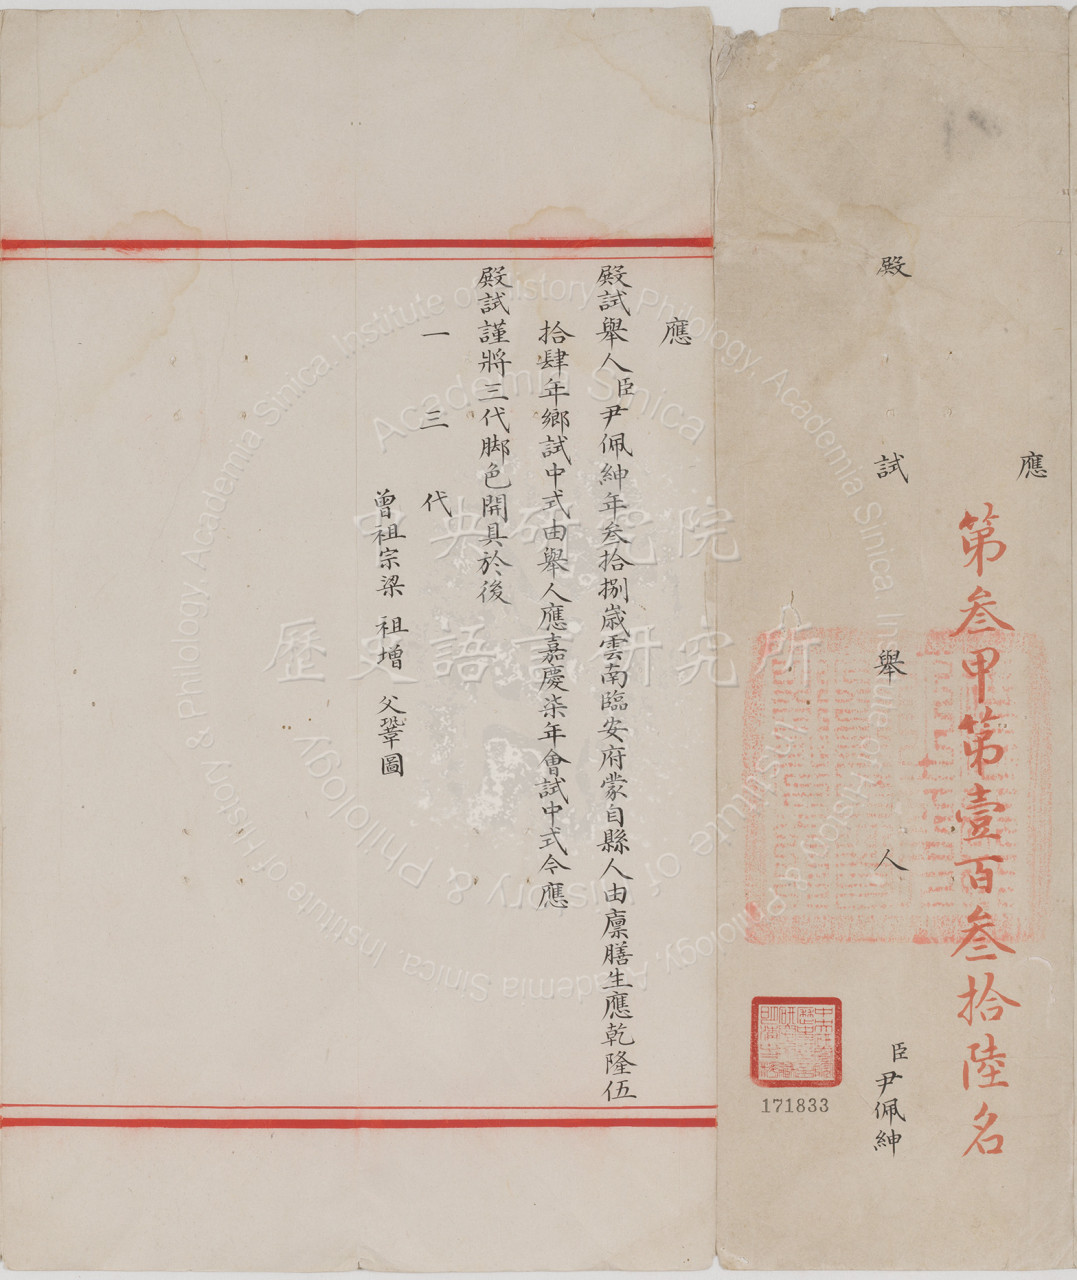 應
第叁甲第壹百叁拾陸名
殿試舉人
臣尹佩紳
171833
應
殿試舉人臣尹佩紳年叁拾捌歲雲南臨安府蒙自縣人由廪膳生應乾隆伍
拾肆年鄉試中式由舉人應嘉慶柒年會試中式今應
殿試謹將三代脚色開具於後
一三代
曾祖宗梁 祖增 父鞏圖
中央研究院
歷史語言研究所
Academia Sinica
Institute of History & Philology, Academia Sinica